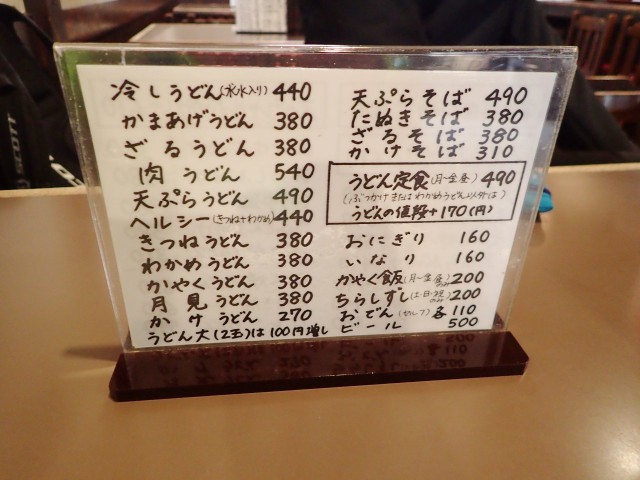 冷しうどん(氷水入り) 440
かまあげうどん 380
ざるうどん 380
肉うどん 540
天ぷらうどん 490
ヘルシー(きつね+わかめ) 440
きつねうどん 380
わかめうどん 380
かやくうどん 380
月見うどん 380
かけうどん 270
うどん大(2玉)は100円増し
天ぷらそば 490
たぬきそば 380
ざるそば 380
かけそば 310
うどん定食(月〜金昼) 490
(ぶっかけまたはわかめうどん以外は)
うどんの値段+170(円)
おにぎり 160
いなり 160
かやく飯(月〜金昼のみ) 200
ちらしずし(土・日・祝のみ) 200
おでん(セルフ) 各110
ビール 500
SCOTT